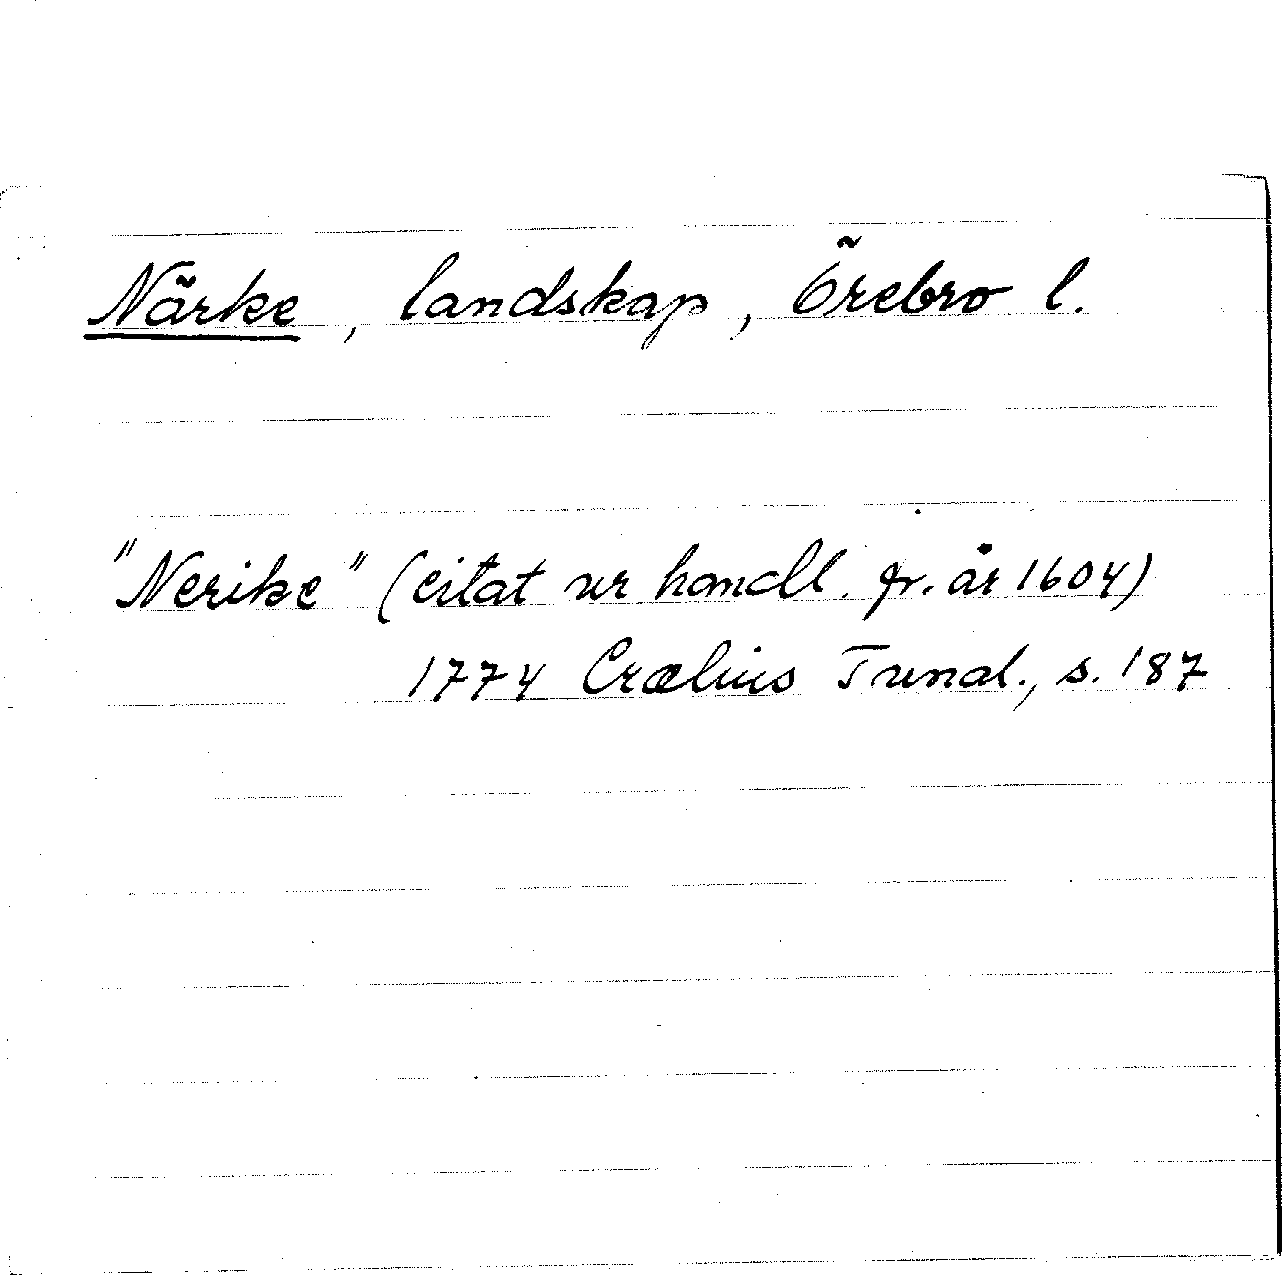 Närke, landskap, Örebro l.
"Nerike" (citat ur handl. fr. år 1604)
1774 Crælius Tunal., s. 187